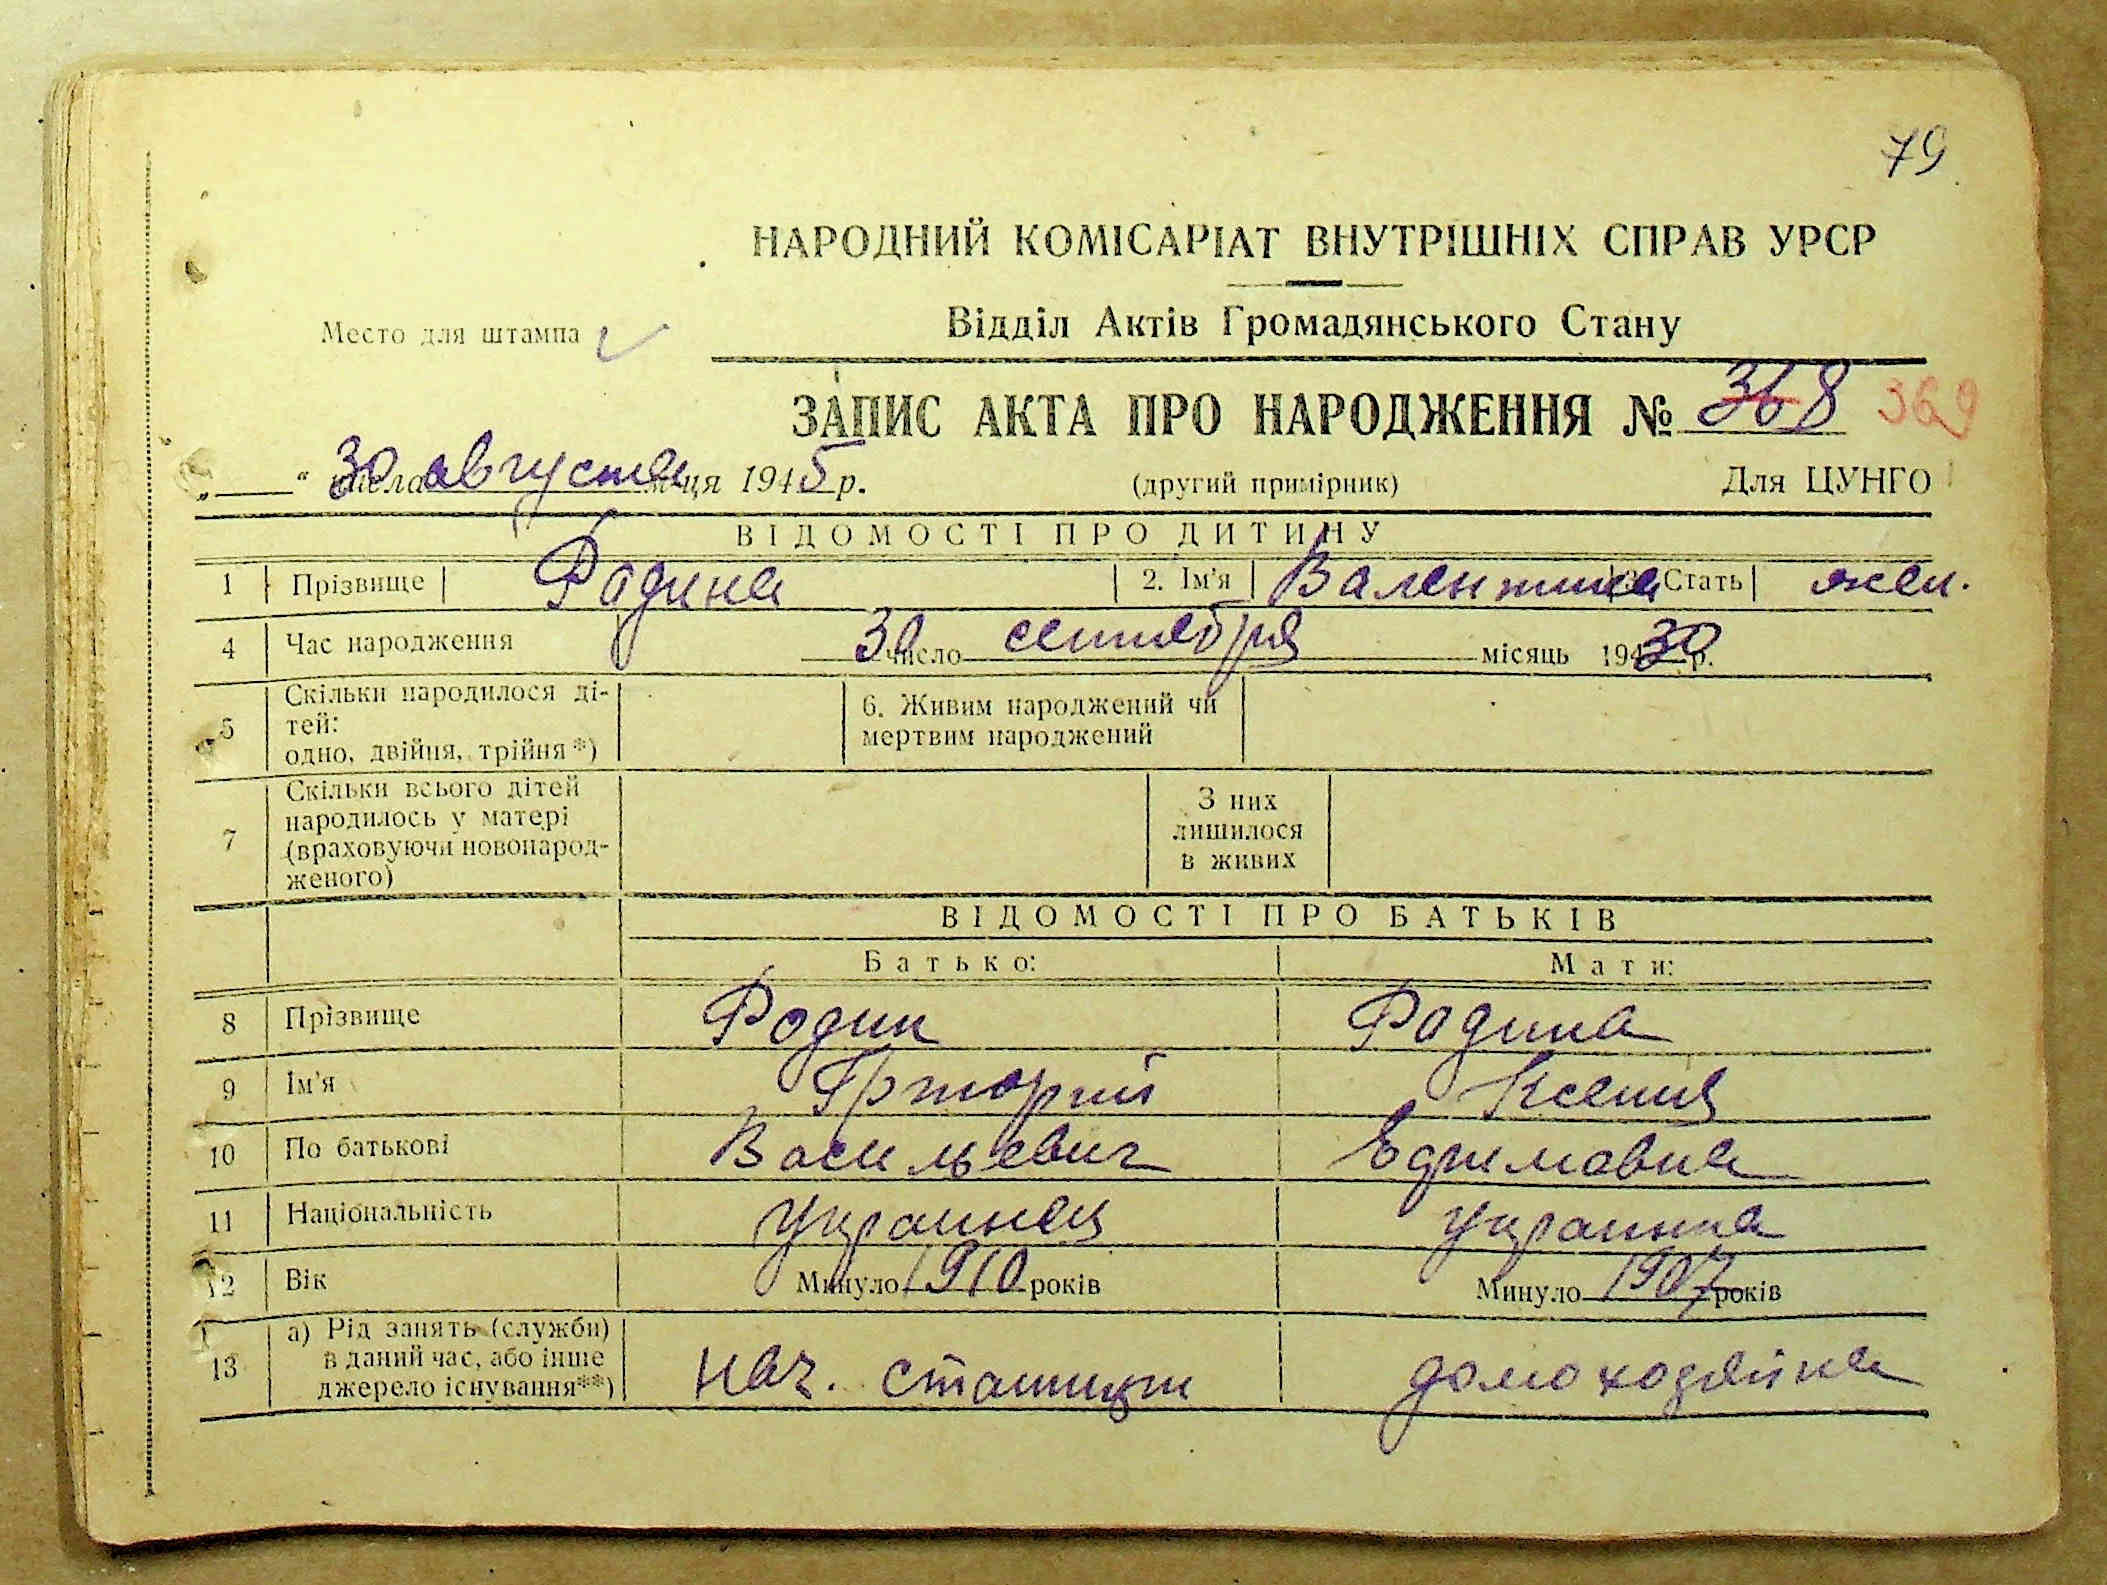 79
НАРОДНИЙ КОМІСАРІАТ ВНУТРІШНІХ СПРАВ УРСР
Место для штампа
Відділ Актів Громадянського Стану
ЗАПИС АКТА ПРО НАРОДЖЕННЯ № 368 369
„ “ 30 числа августа м-ця 1945 р. (другий примірник) Для ЦУНГО
ВІДОМОСТІ ПРО ДИТИНУ
1 Прізвище Родина 2. Ім'я Валентина 3. Стать жен.
4 Час народження 30 число сентября місяць 194 30 р.
5 Скільки народилося ді-
тей:
одно, двійня, трійня *)
6. Живим народжений чи
мертвим народжений
7 Скільки всього дітей
народилось у матері
(враховуючи новонарод-
женого)
З них
лишилося
в живих
ВІДОМОСТІ ПРО БАТЬКІВ
Батько: Мати:
8 Прізвище Родин Родина
9 Ім'я Ксения
10 По батькові Васильевич
11 Національність украинец украинка
12 Вік Минуло 1910 років Минуло 1907 років
13 а) Рід занять (служби)
в даний час, або інше
джерело існування**)
нач. станции домохозяйка